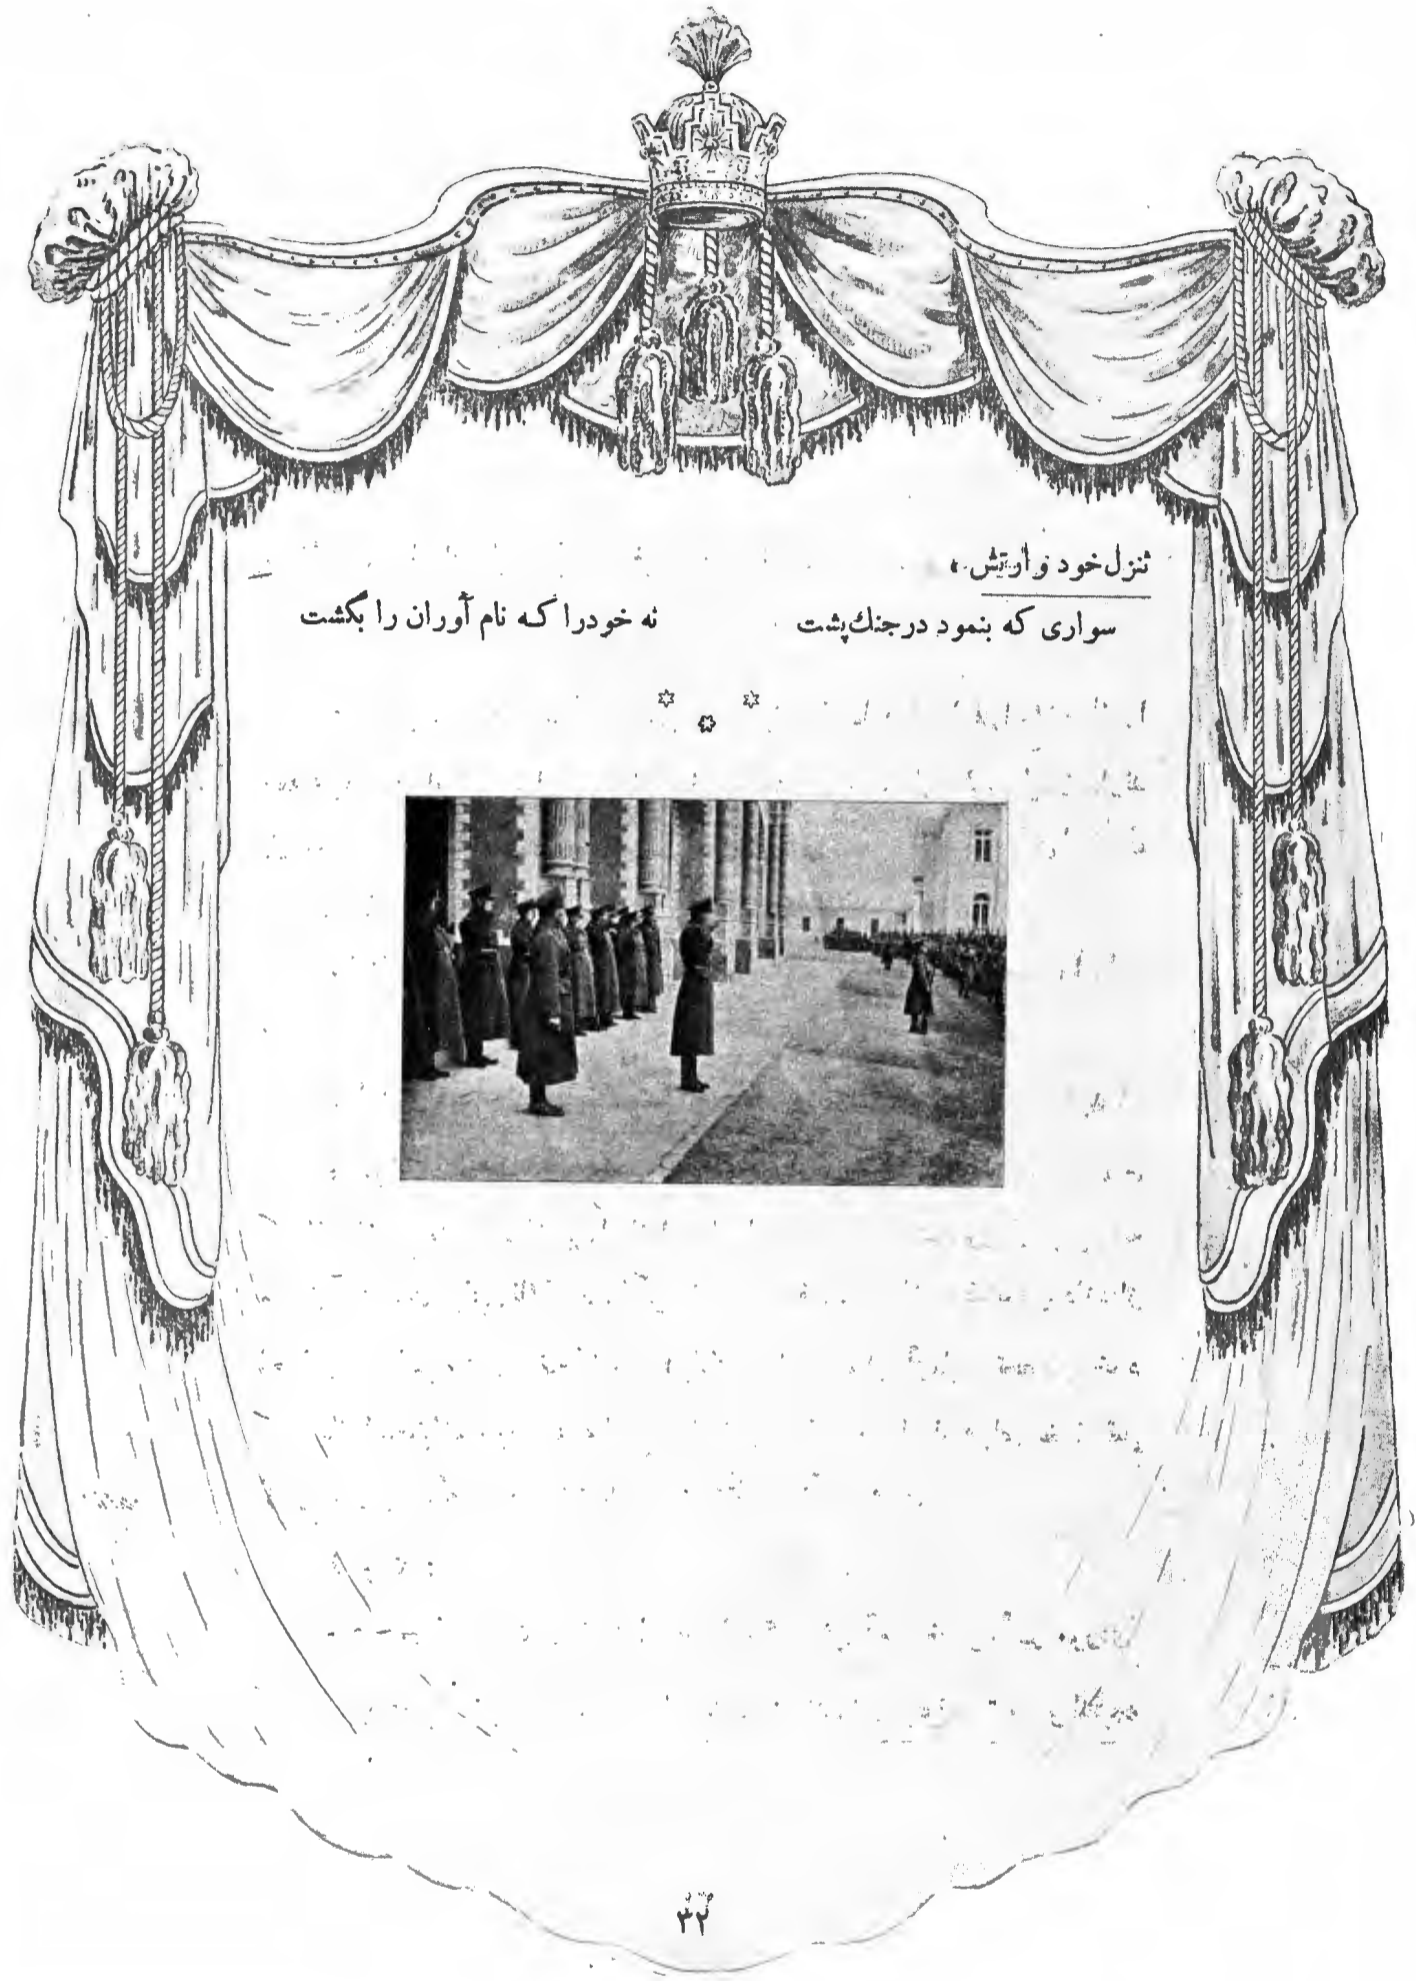 تنزل خود و ارتش»
سواری که بنمود در جنك پشت نه خودرا که نام آوران را بکشت
۳۲